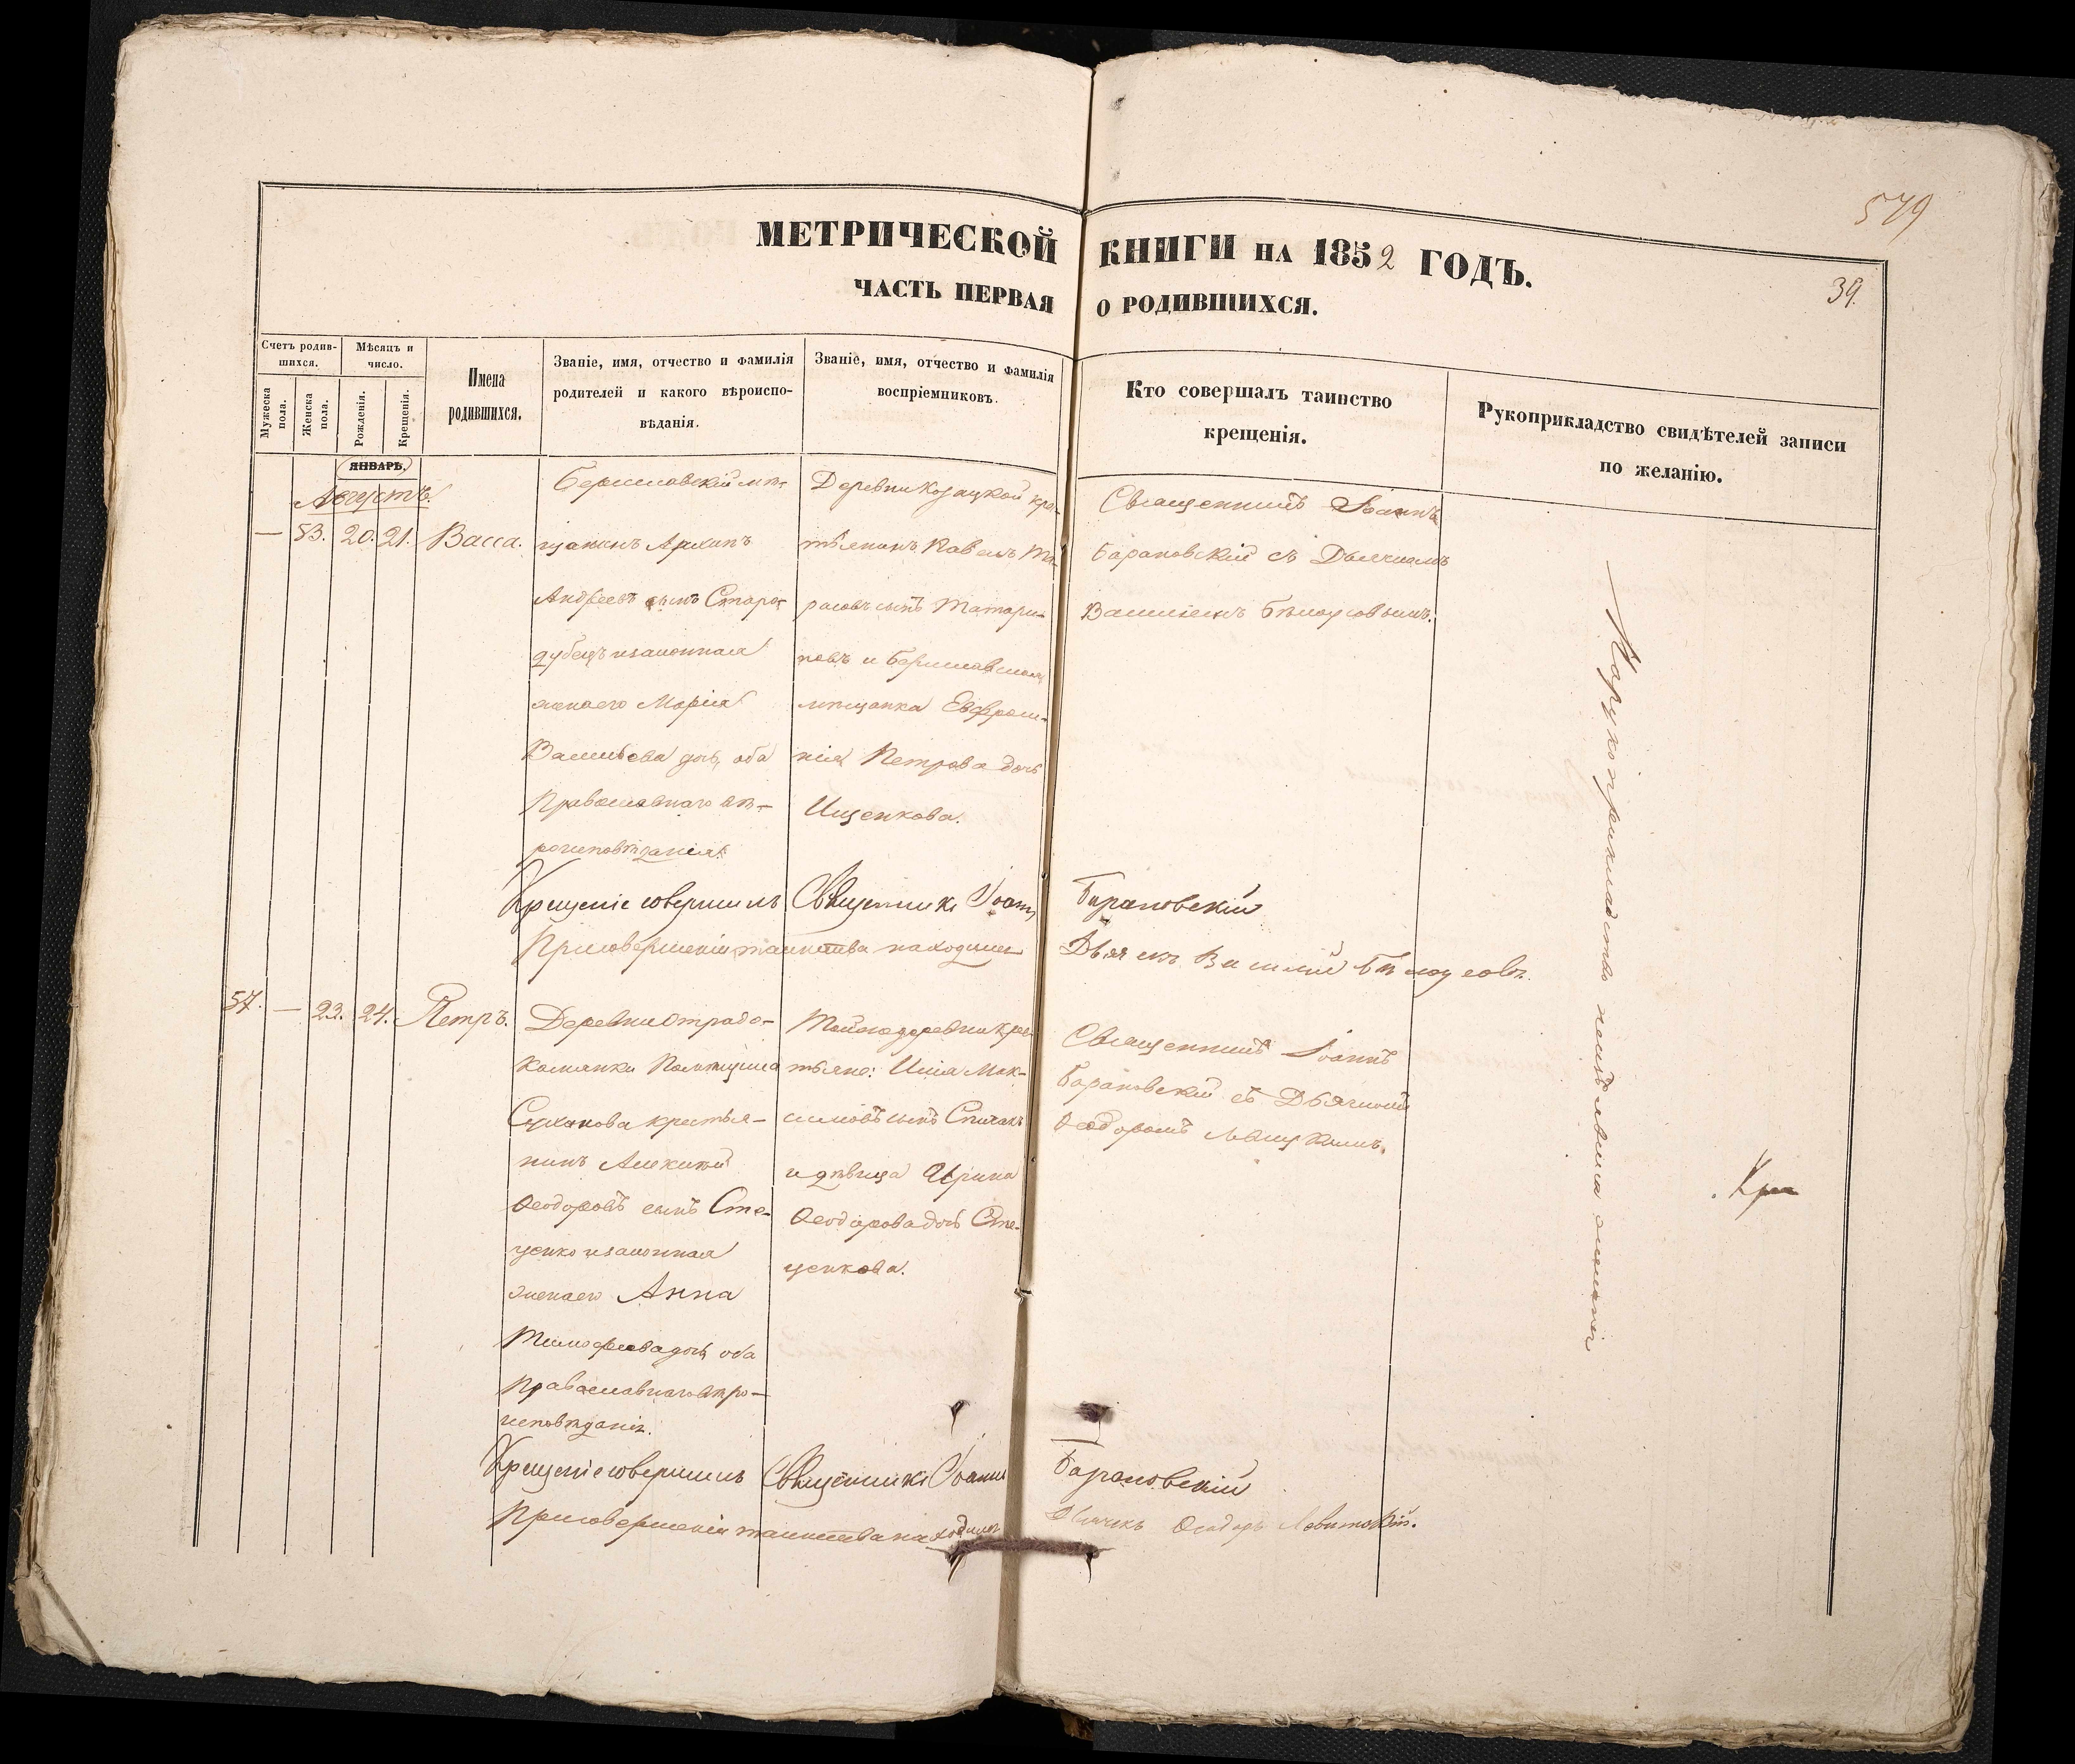 579
МЕТРИЧЕСКОЙ КНИГИ НА 1852 ГОДЪ.
39.
ЧАСТЬ ПЕРВАЯ О РОДИВШИХСЯ.
Счетъ родив-
шихся.
Мужеска пола.
Женска пола.
Мѣсяцъ и
число.
Рожденія.
Крещенія.
Имена
родившихся.
Званіе, имя, отчество и фамилія
родителей и какого вѣроиспо-
вѣданія.
Званіе, имя, отчество и фамилія
воспріемниковъ.
Кто совершалъ таинство
крещенія.
Рукоприкладство свидѣтелей записи
по желанію.
ЯНВАРЬ.
Августъ.
— 53. 20. 21. Васса.
Бериславскій мѣ-
щанинъ Архипъ
Андреевъ сынъ Старо-
дубецъ изаконная
женаего Марія
Васильева дочь, оба
Православнаго вѣ-
роисповѣданія.
Деревни Козацкой кре-
стьянинъ Павелъ Та-
расовъ сынъ Татари-
новъ и Бериславская
мѣщанка Евфроси-
нія Петрова дочь
Ищенкова.
Священникъ Іоаннъ
Барановскій съ Дьячкомъ
Василіемъ Бѣлоусовымъ.
Крещеніе совершилъ Священникъ Іоаннъ Барановскій
Присовершеніи таинства находился Дьячекъ Василій Бѣлоусовъ.
57. — 23. 24. Петръ.
Деревни Отрадо-
Каменки Помѣщика
крестья-
нинъ Алексѣй
Ѳеодоровъ сынъ Сте-
ценко изаконная
женаего Анна
Тимофеевадочь, оба
Православнаговѣро-
исповѣданія.
Тойжедеревникре-
стьяне: Илія Мак-
симовъ сынъ Спичакъ
и дѣвица Ирина
Ѳеодоровадочь Сте-
ценкова.
Священникъ Іоаннъ
Барановскій съ Дьячкомъ
Ѳеодоромъ
Крещеніе совершилъ Священникъ Іоаннъ Барановскій
Присовершеніи таинства находился Дьячекъ Ѳеодоръ
Крк